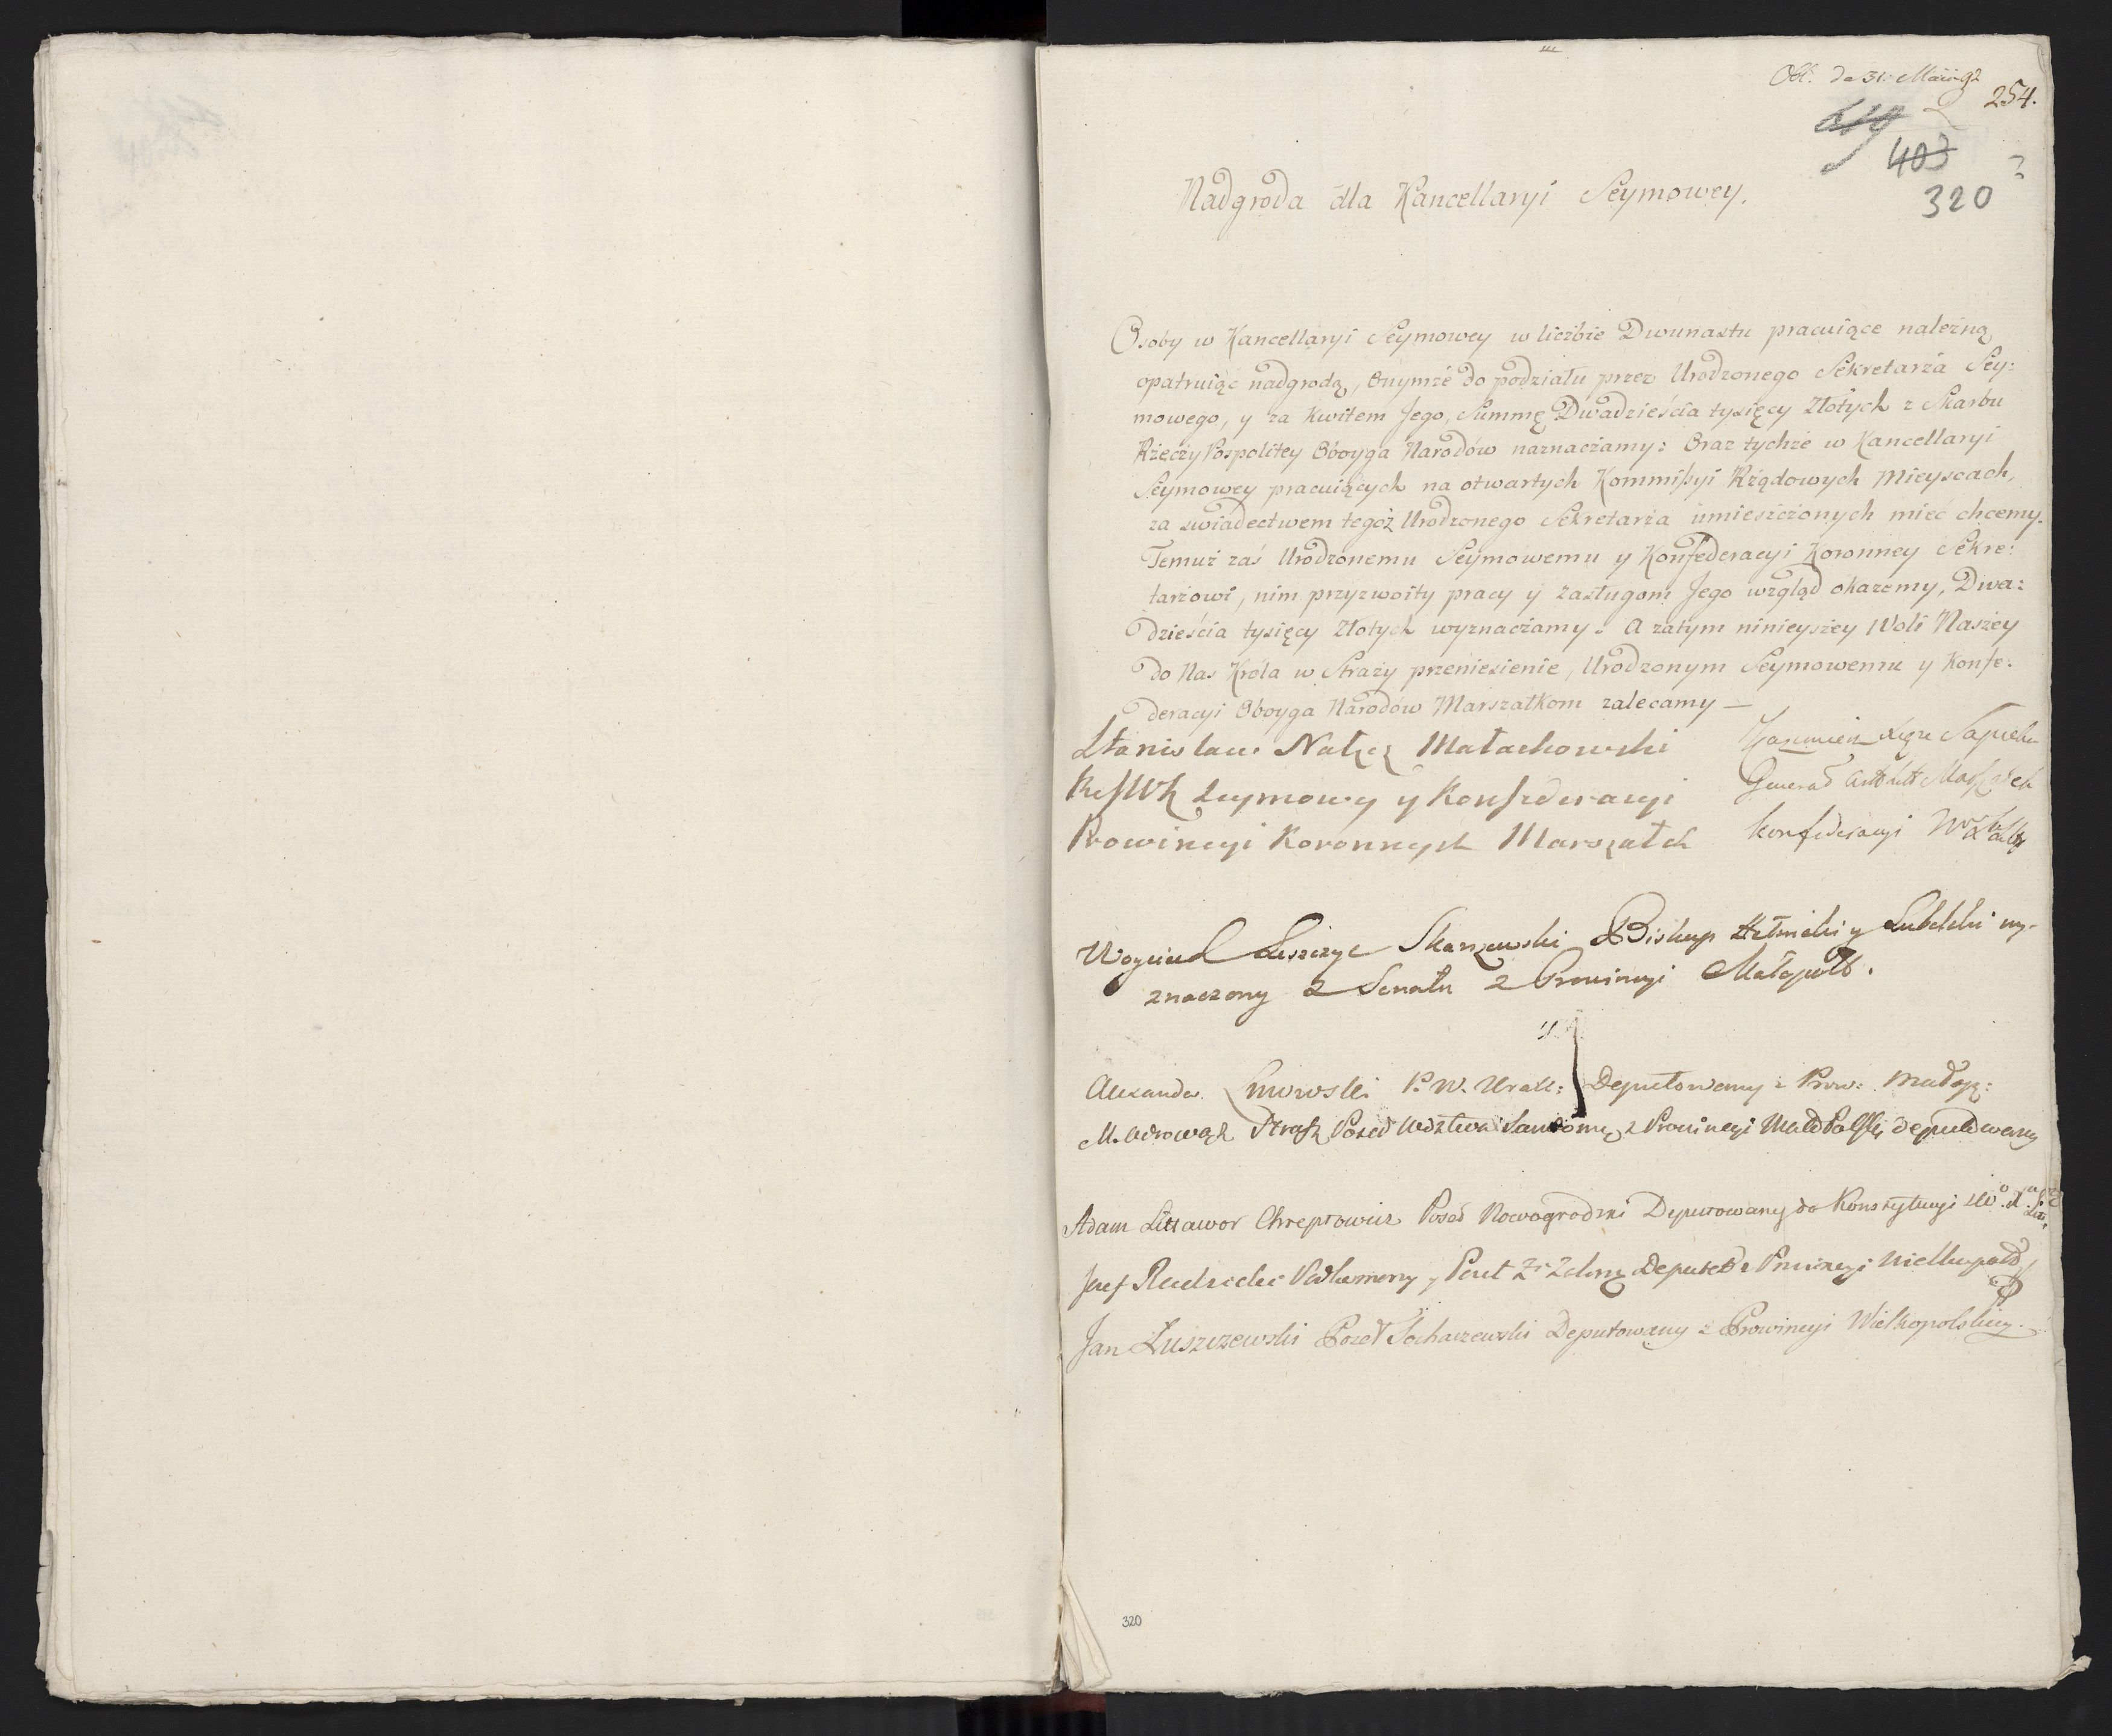 Obl. de 31. Maii 92
254.
403
320
Nadgroda dla Kancellaryi Seymowey.
Osoby w Kancellaryi Seymowey w liczbie Dwunastu pracuiące należną
opatruiąc nadgrodą, Onymże do podziału przez Urodzonego Sekretarza Sey:
mowego, y za Kwitem Jego, Summę Dwadzieścia tysięcy Złotych z Skarbu
RzeczyPospolitey Oboyga Narodów naznaczamy: Oraz tychże w Kancellaryi
Seymowey pracuiących na otwartych Kommißyi Rządowych Mieyscach,
za swiadectwem tegoż Urodzonego Sekretarza umieszczonych mieć chcemy.
Temuż zaś Urodzonemu Seymowemu y Konfederacyi Koronney Sekre:
tarzowi, nim przyzwoity pracy y zasługom Jego wzgląd okażemy, Dwa:
dzieścia tysięcy Złotych wyznaczamy. A zatym ninieyszey Woli Naszey
do Nas Króla w Straży przeniesienie, Urodzonym Seymowemu y Konfe:
deracyi Oboyga Narodów Marszałkom zalecamy —
Stanisław Nałęcz Małachowski
Refer W K Seymowy y Konfederacyi
Prowincyi Koronnych Marszałek
Kazimierz Xiąże Sapieha
Generał Marszałek
konfederacyi
Woyciech Leszczyc Skarszewski Biskup Chełmski y Lubelski wy-
znaczony z Senatu z Prowincyi Małopols.
Alexander Linowski P. W. Krak: Deputowany z Prow: Małop:
M. Odrowąż Strasz Poseł Wdztwa Sandomir z Prowincyi MałoPolskiey deputowany
Adam Littawor Chreptowicz Poseł Nowogrodzki Deputowany do Konstytucyi
Jozef Radzicki Podkomorzy y Poseł Deputat z Prowincyi Wielkopols
Jan Łuszczewski Poseł Sochaczewski Deputowany z Prowincyi Wielkopolskiey.
320